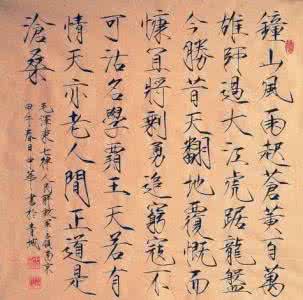 鐘山風雨起蒼黃百萬
雄師過大江虎踞龍盤
今勝昔天翻地覆慨而
慷宜將剩勇追窮寇不
可沽名學霸王天若有
情天亦老人間正道是
滄桑
毛澤東七律人民解放軍占領南京
甲午春日中華書於青城